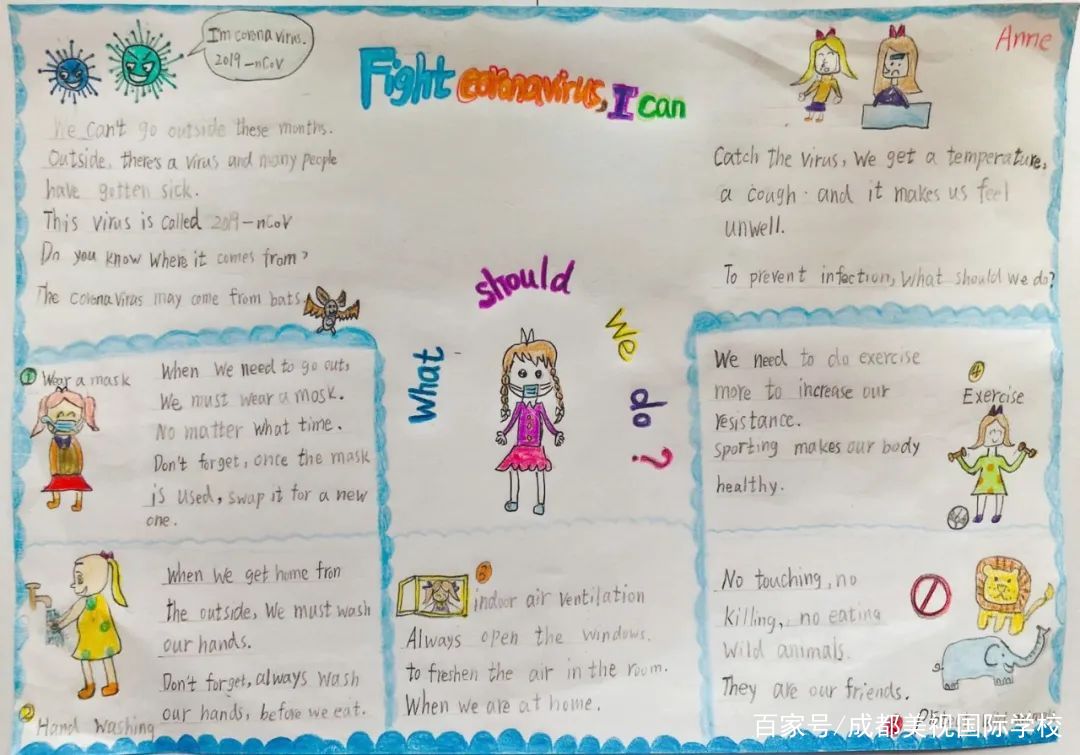 I'm corona virus.
2019-nCoV
Fight coronavirus, I can
Anne
We can't go outside these months.
Outside, there's a virus and many people
have gotten sick.
This virus is called 2019-nCoV
Do you know where it comes from?
The coronavirus may come from bats
Catch the virus, we get a temperature,
a cough. and it makes us feel
unwell.
To prevent infection, what should we do?
What should we do?
① Wear a mask
When we need to go out,
We must wear a mask.
No matter what time.
Don't forget, once the mask
is used, swap it for a new
one.
When we get home fron
the outside, we must wash
our hands.
Don't forget, always wash
our hands, before we eat.
② Hand washing
③
indoor air ventilation
Always open the windows.
to freshen the air in the room.
When we are at home.
④
Exercise
We need to do exercise
more to increase our
resistance.
sporting makes our body
healthy.
No touching, no
killing, no eating
wild animals.
They are our friends.
百家号/成都美视国际学校